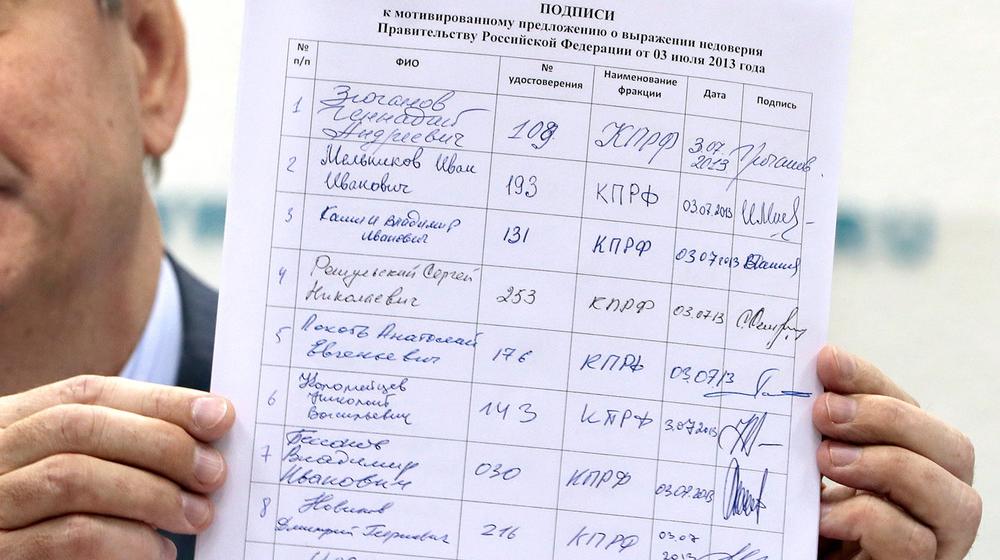 ПОДПИСИ
к мотивированному предложению о выражении недоверия
Правительству Российской Федерации от 03 июля 2013 года
№ п/п ФИО № удостоверения Наименование фракции Дата Подпись
1 Зюганов Геннадий Андреевич 109 КПРФ 3.07.2013 Зюганов
2 Мельников Иван Иванович 193 КПРФ 03.07.2013
3 Кашин Владимир Иванович 131 КПРФ 03.07.2013
4 Решульский Сергей Николаевич 253 КПРФ 03.07.13
5 Локоть Анатолий Евгеньевич 176 КПРФ 03.07.13
6 Коломейцев Николай Васильевич 143 КПРФ 3.07.2013
7 Бессонов Владимир Иванович 030 КПРФ 03.07.2013
8 Новиков Дмитрий Георгиевич 216 КПРФ 03.07 2013